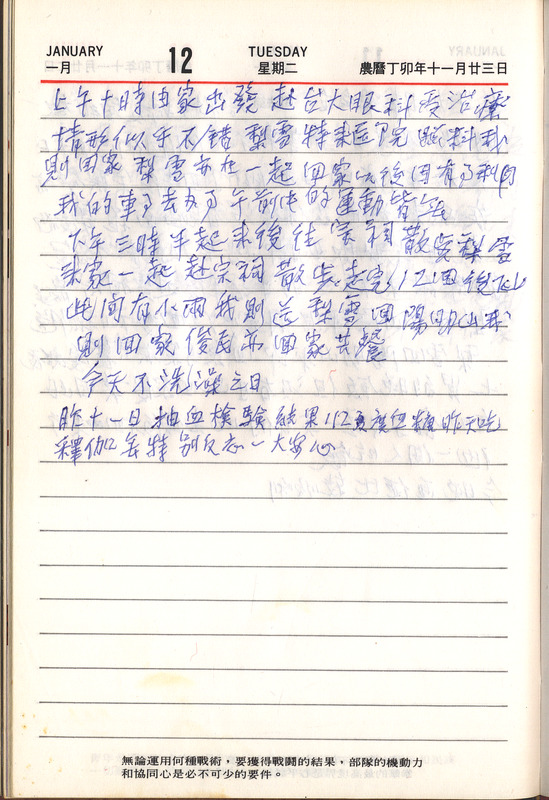 JANUARY
一月
12
TUESDAY
星期二
農曆丁卯年十一月廿三日
上午十時由家出發赴台大眼科受治療
情形似乎不錯梨雪特來醫院照料我
則回家梨雪亦在一起回家以後因有了利用
我的車子去力乃午前的運動皆無
下午三時半起來後往宗祠散步梨雪
來家一起赴宗祠散步走完12回後
此间有小雨我則送梨雪回陽明山我
則回家俊民亦回家共餐
今天不洗澡之日
昨十一日抽血檢驗結果112度血糖昨天吃
釋伽無特別反应一大安心
無論運用何種戰術，要獲得戰鬪的結果，部隊的機動力
和協同心是必不可少的要件。